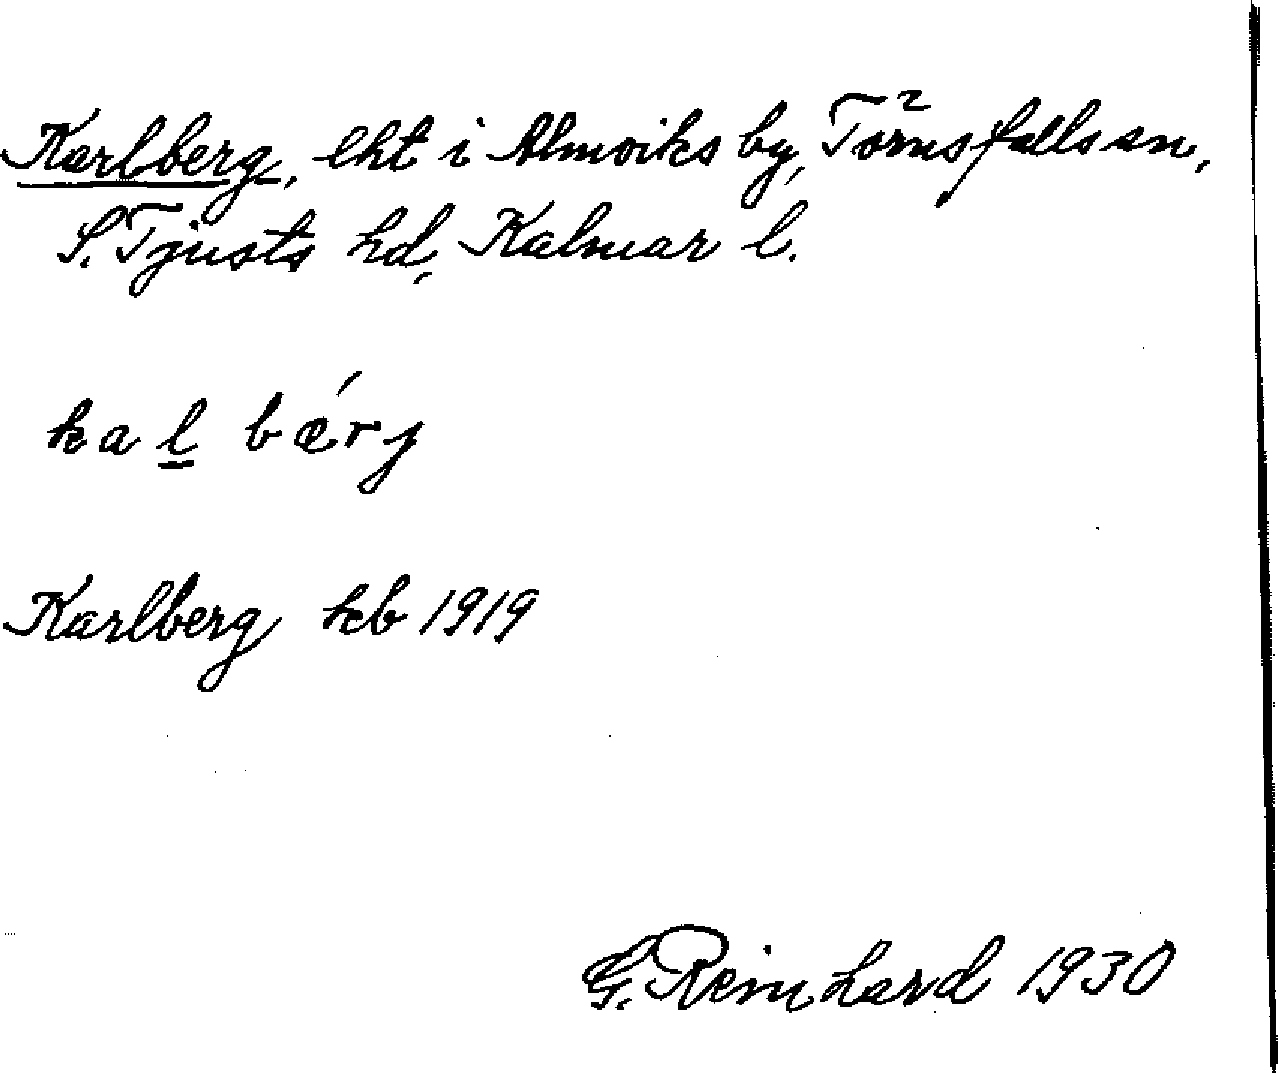 Karlberg, lht i Almviks by, Törnsfalls sn,
S. Tjusts hd, Kalmar l.
ka l bǽrj
Karlberg kb 1919
G. Reinhard 1930